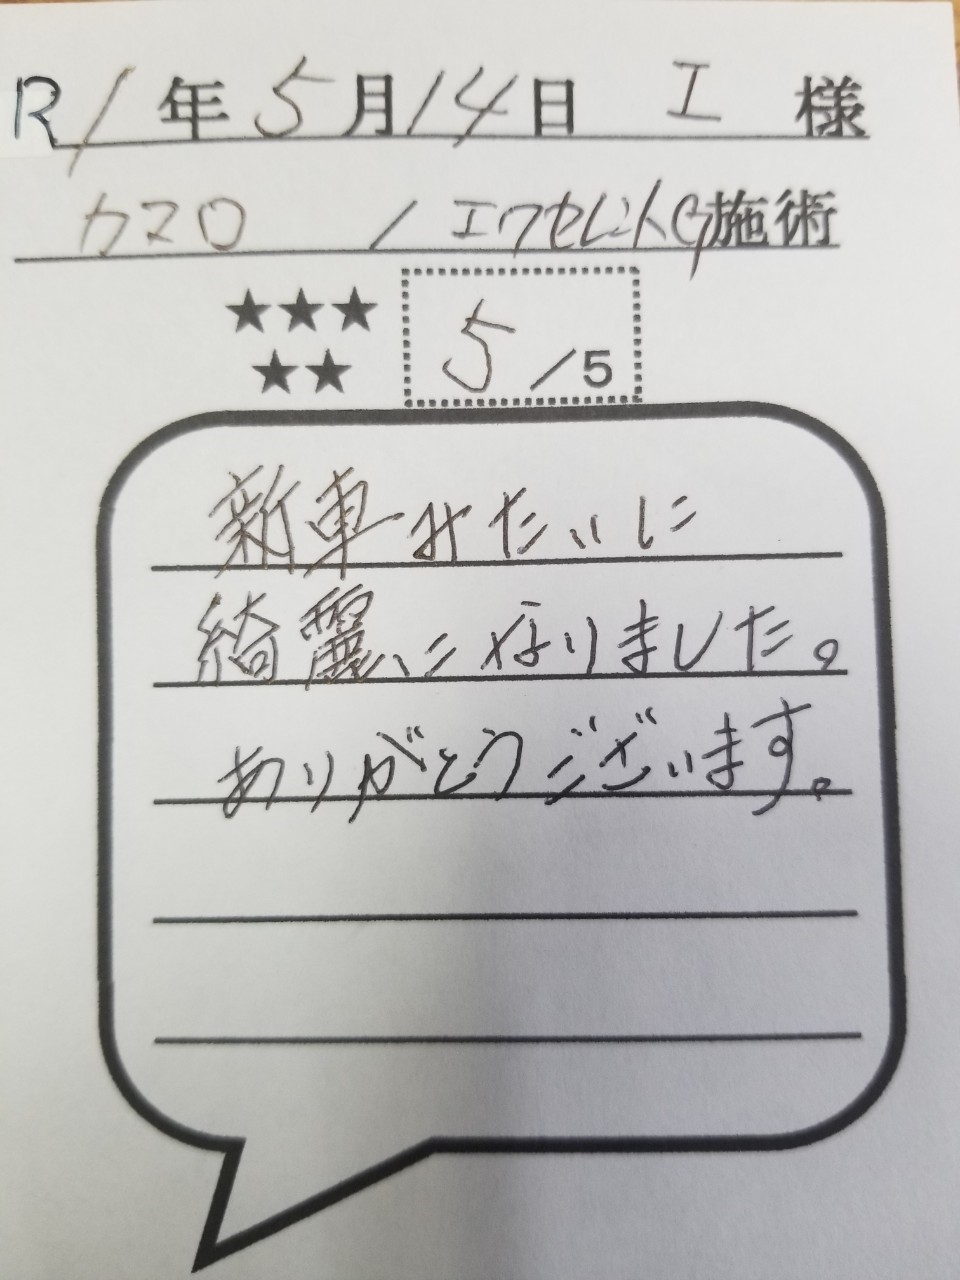 R1年5月14日 I 様
カマロ / エクセレントG施術
★★★
★★
5/5
新車みたいに
綺麗になりました。
ありがとうございます。